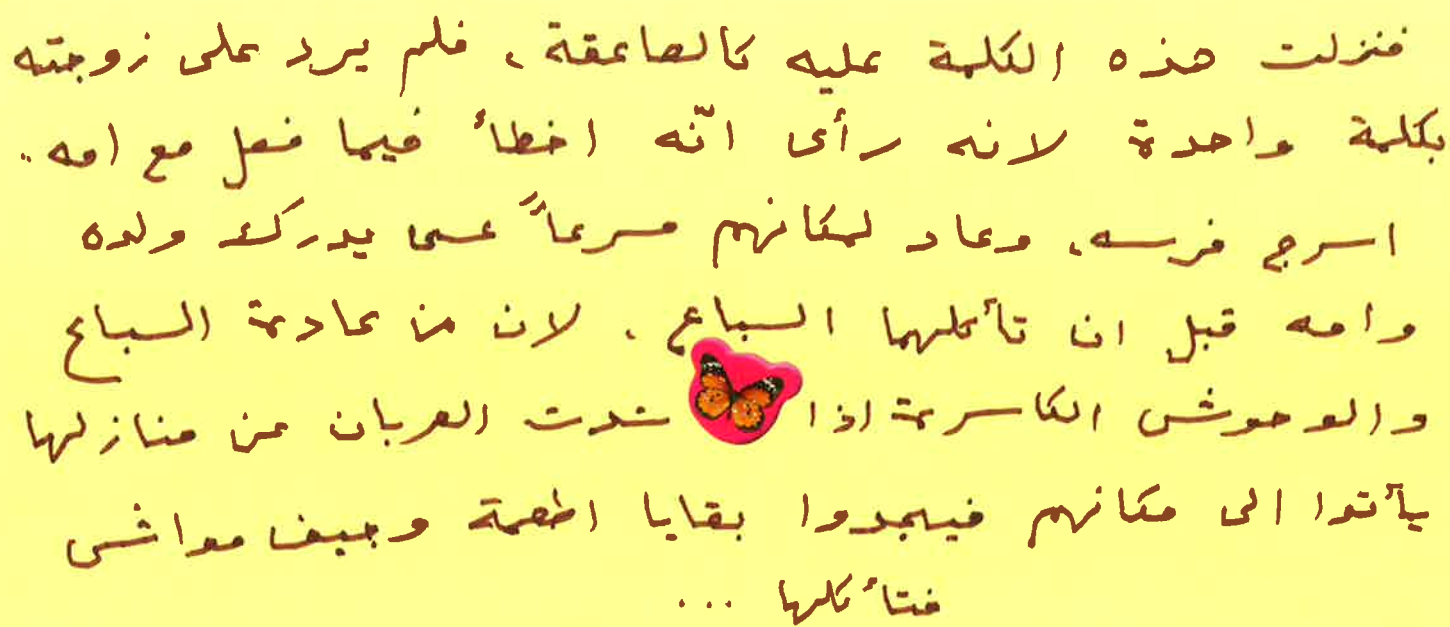 فنزلت هذه الكلمة عليه كالصاعقة، فلم يرد على زوجته
بكلمة واحدة لانه رأى انّه اخطأ فيما فعل مع امه..
اسرج فرسه، وعاد لمكانهم مسرعاً عسى يدرك ولده
وامه قبل ان تأكلهما السباع، لان من عادة السباع
والوحوش الكاسرة اذا شدت العربان من منازلها
يأتوا الى مكانهم فيجدوا بقايا اطعمة وجيف مواشي
فتأكلها ...